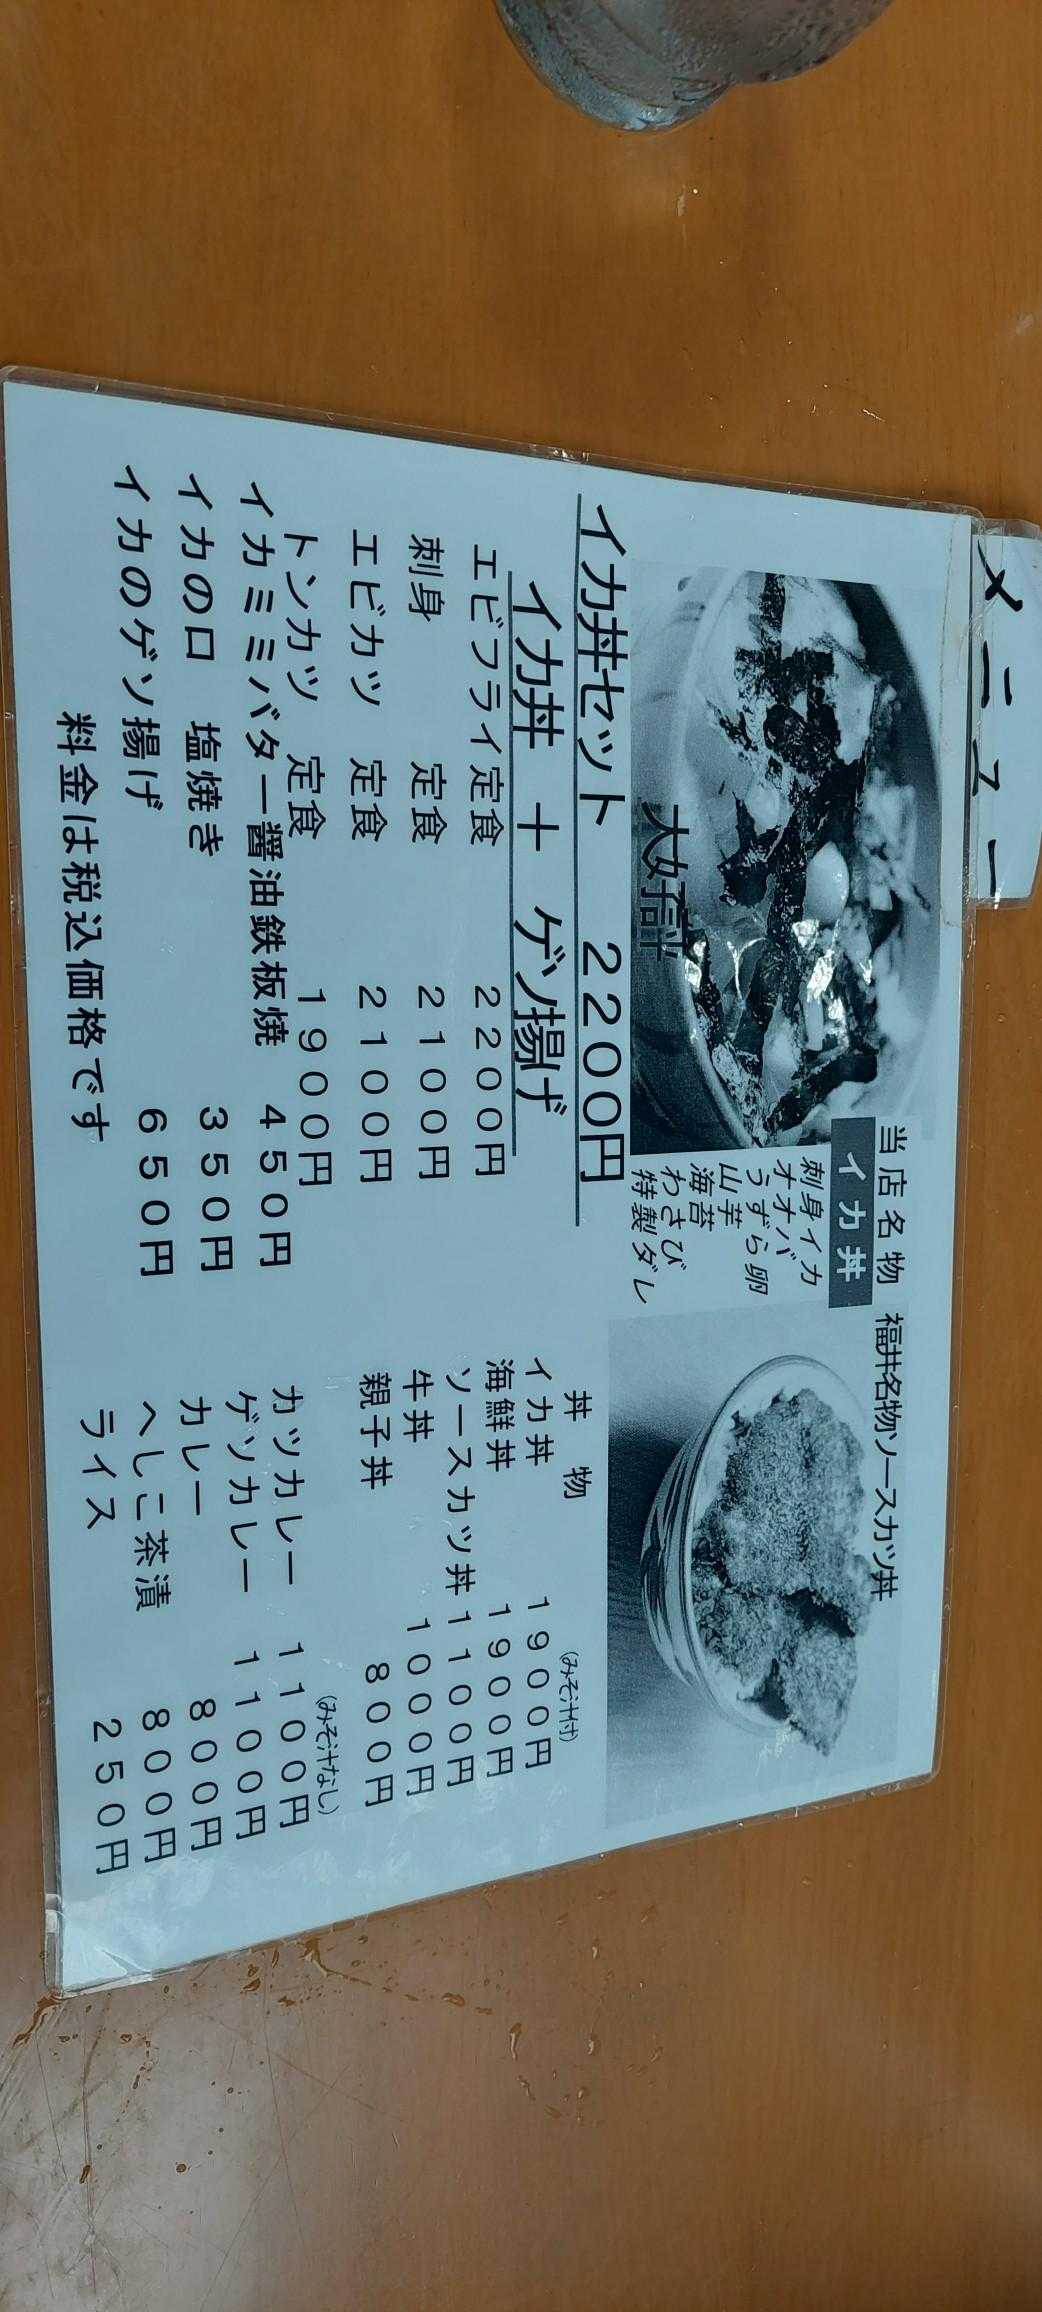 メニュー
当店名物
イカ丼
刺身イカ
オオバ
うずら卵
山芋
海苔
わさび
特製ダレ
大好評
イカ丼セット 2200円
イカ丼 + ゲソ揚げ
エビフライ定食 2200円
刺身 定食 2100円
エビカツ 定食 2100円
トンカツ 定食 1900円
イカミミバター醤油鉄板焼 450円
イカの口 塩焼き 350円
イカのゲソ揚げ 650円
料金は税込価格です
福井名物ソースカツ丼
丼物 (みそ汁付)
イカ丼 1900円
海鮮丼 1900円
ソースカツ丼 1100円
牛丼 1000円
親子丼 800円
(みそ汁なし)
カツカレー 1100円
ゲソカレー 1100円
カレー 800円
へしこ茶漬 800円
ライス 250円